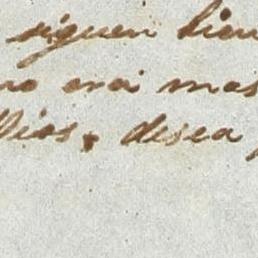 siguen bien
no crei mas
Dios, desea